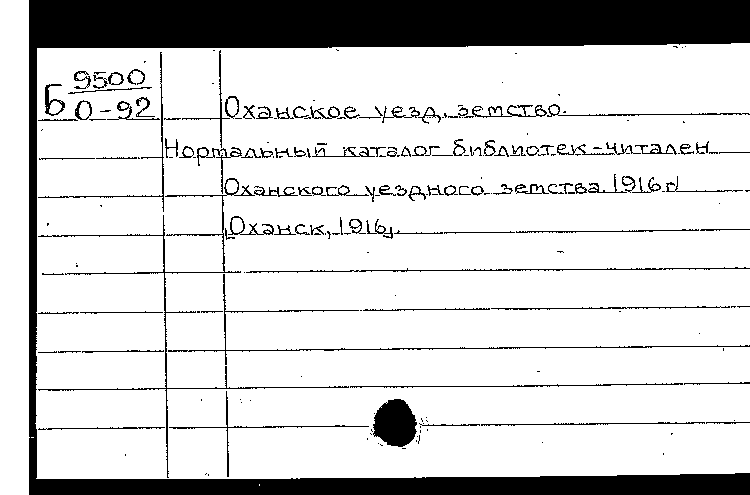 Б 9500
О-92
Оханское уезд. земство.
Нормальный каталог библиотек-читален
Оханского уездного земства. 1916 г.
[Оханск, 1916].